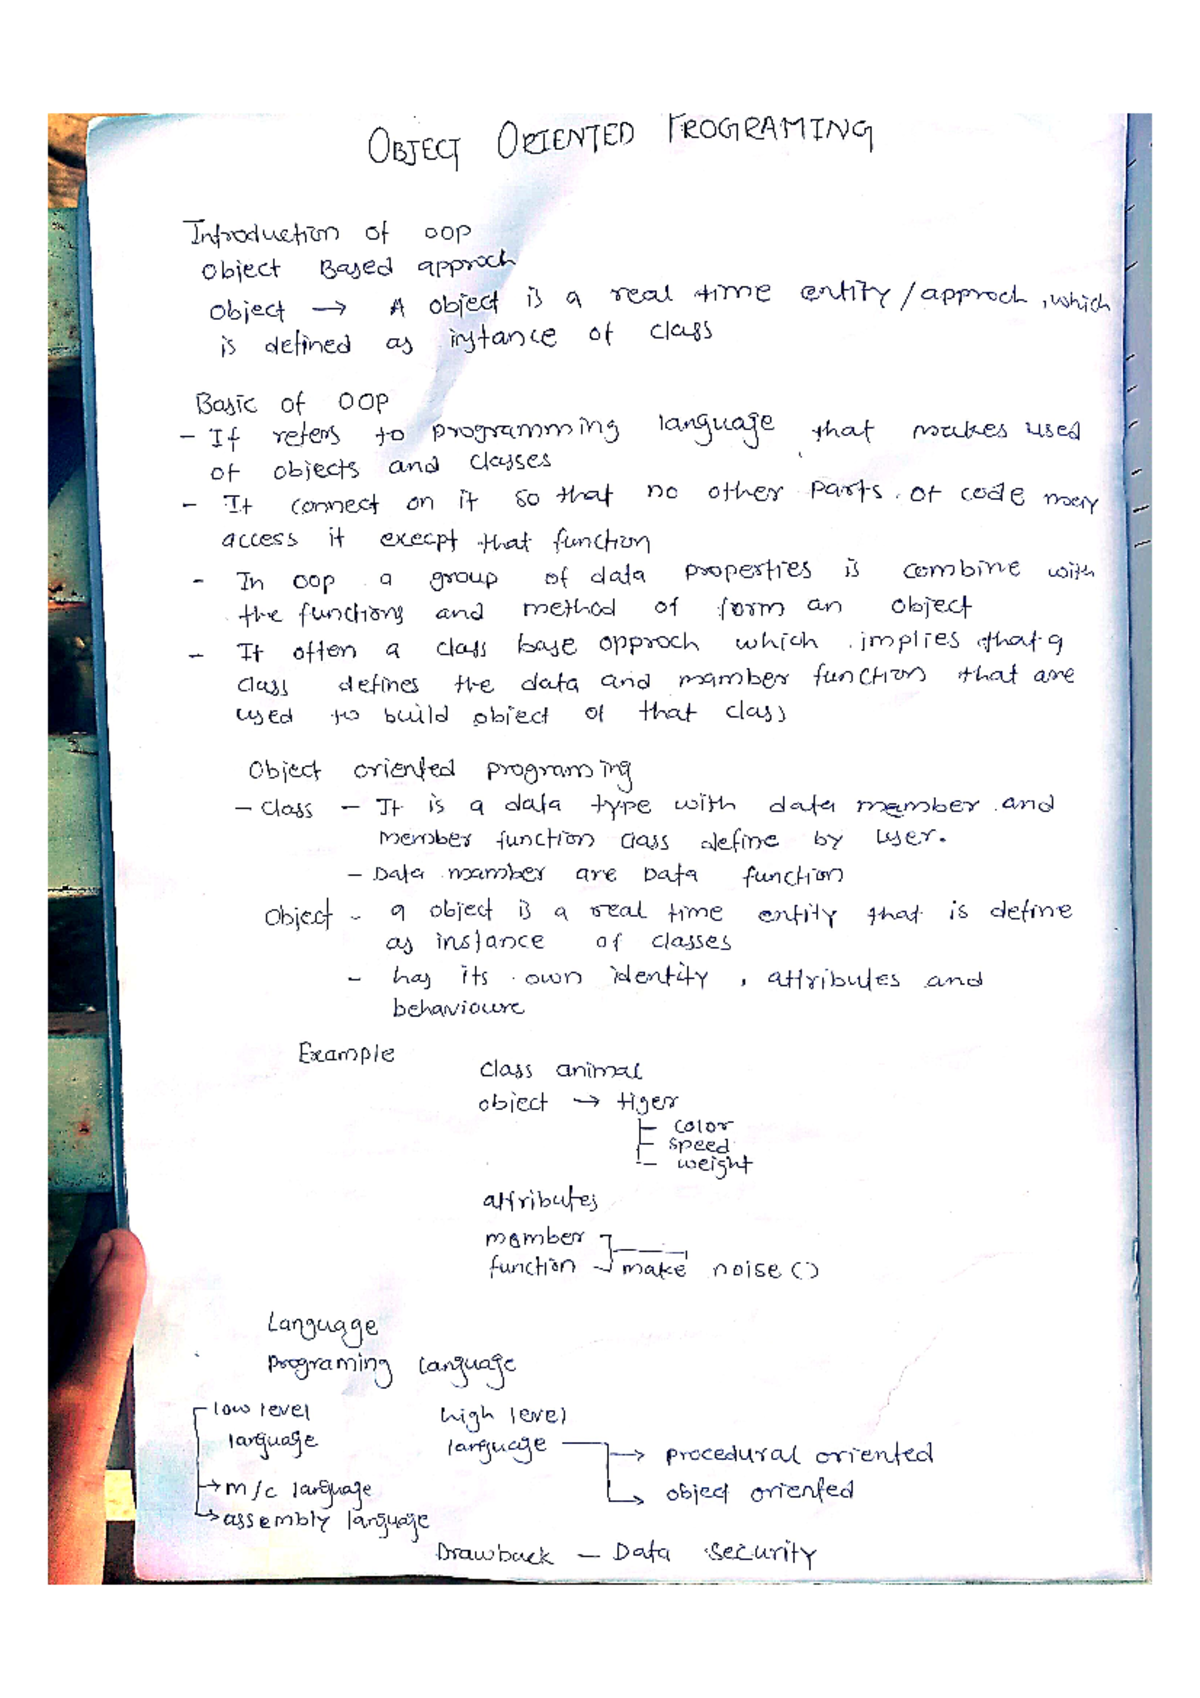 OBJECT ORIENTED PROGRAMING
Introduction of OOP
object Based approch
object → A object is a real time entity/approch, which
is defined as instance of class
Basic of OOP
- It refers to programming language that makes used
of objects and classes
- It connect on it so that no other parts of code may
access it execpt that function
- In oop a group of data properties is combine with
the functions and method of form an object
- It often a class base approch which implies that a
class defines the data and mamber function that are
used to build object of that class
Object oriented programing
- Class - It is a data type with data member and
member function class define by user.
- Data mamber are Data function
Object - a object is a real time entity that is define
as instance of classes
- has its own identity, attributes and
behavioure
Example
class animal
object → tiger
color
speed
weight
attributes
member
function make noise ()
Language
programing language
low level high level
language language → procedural oriented
→ m/c language → object oriented
→ assembly language
Drawback - Data security